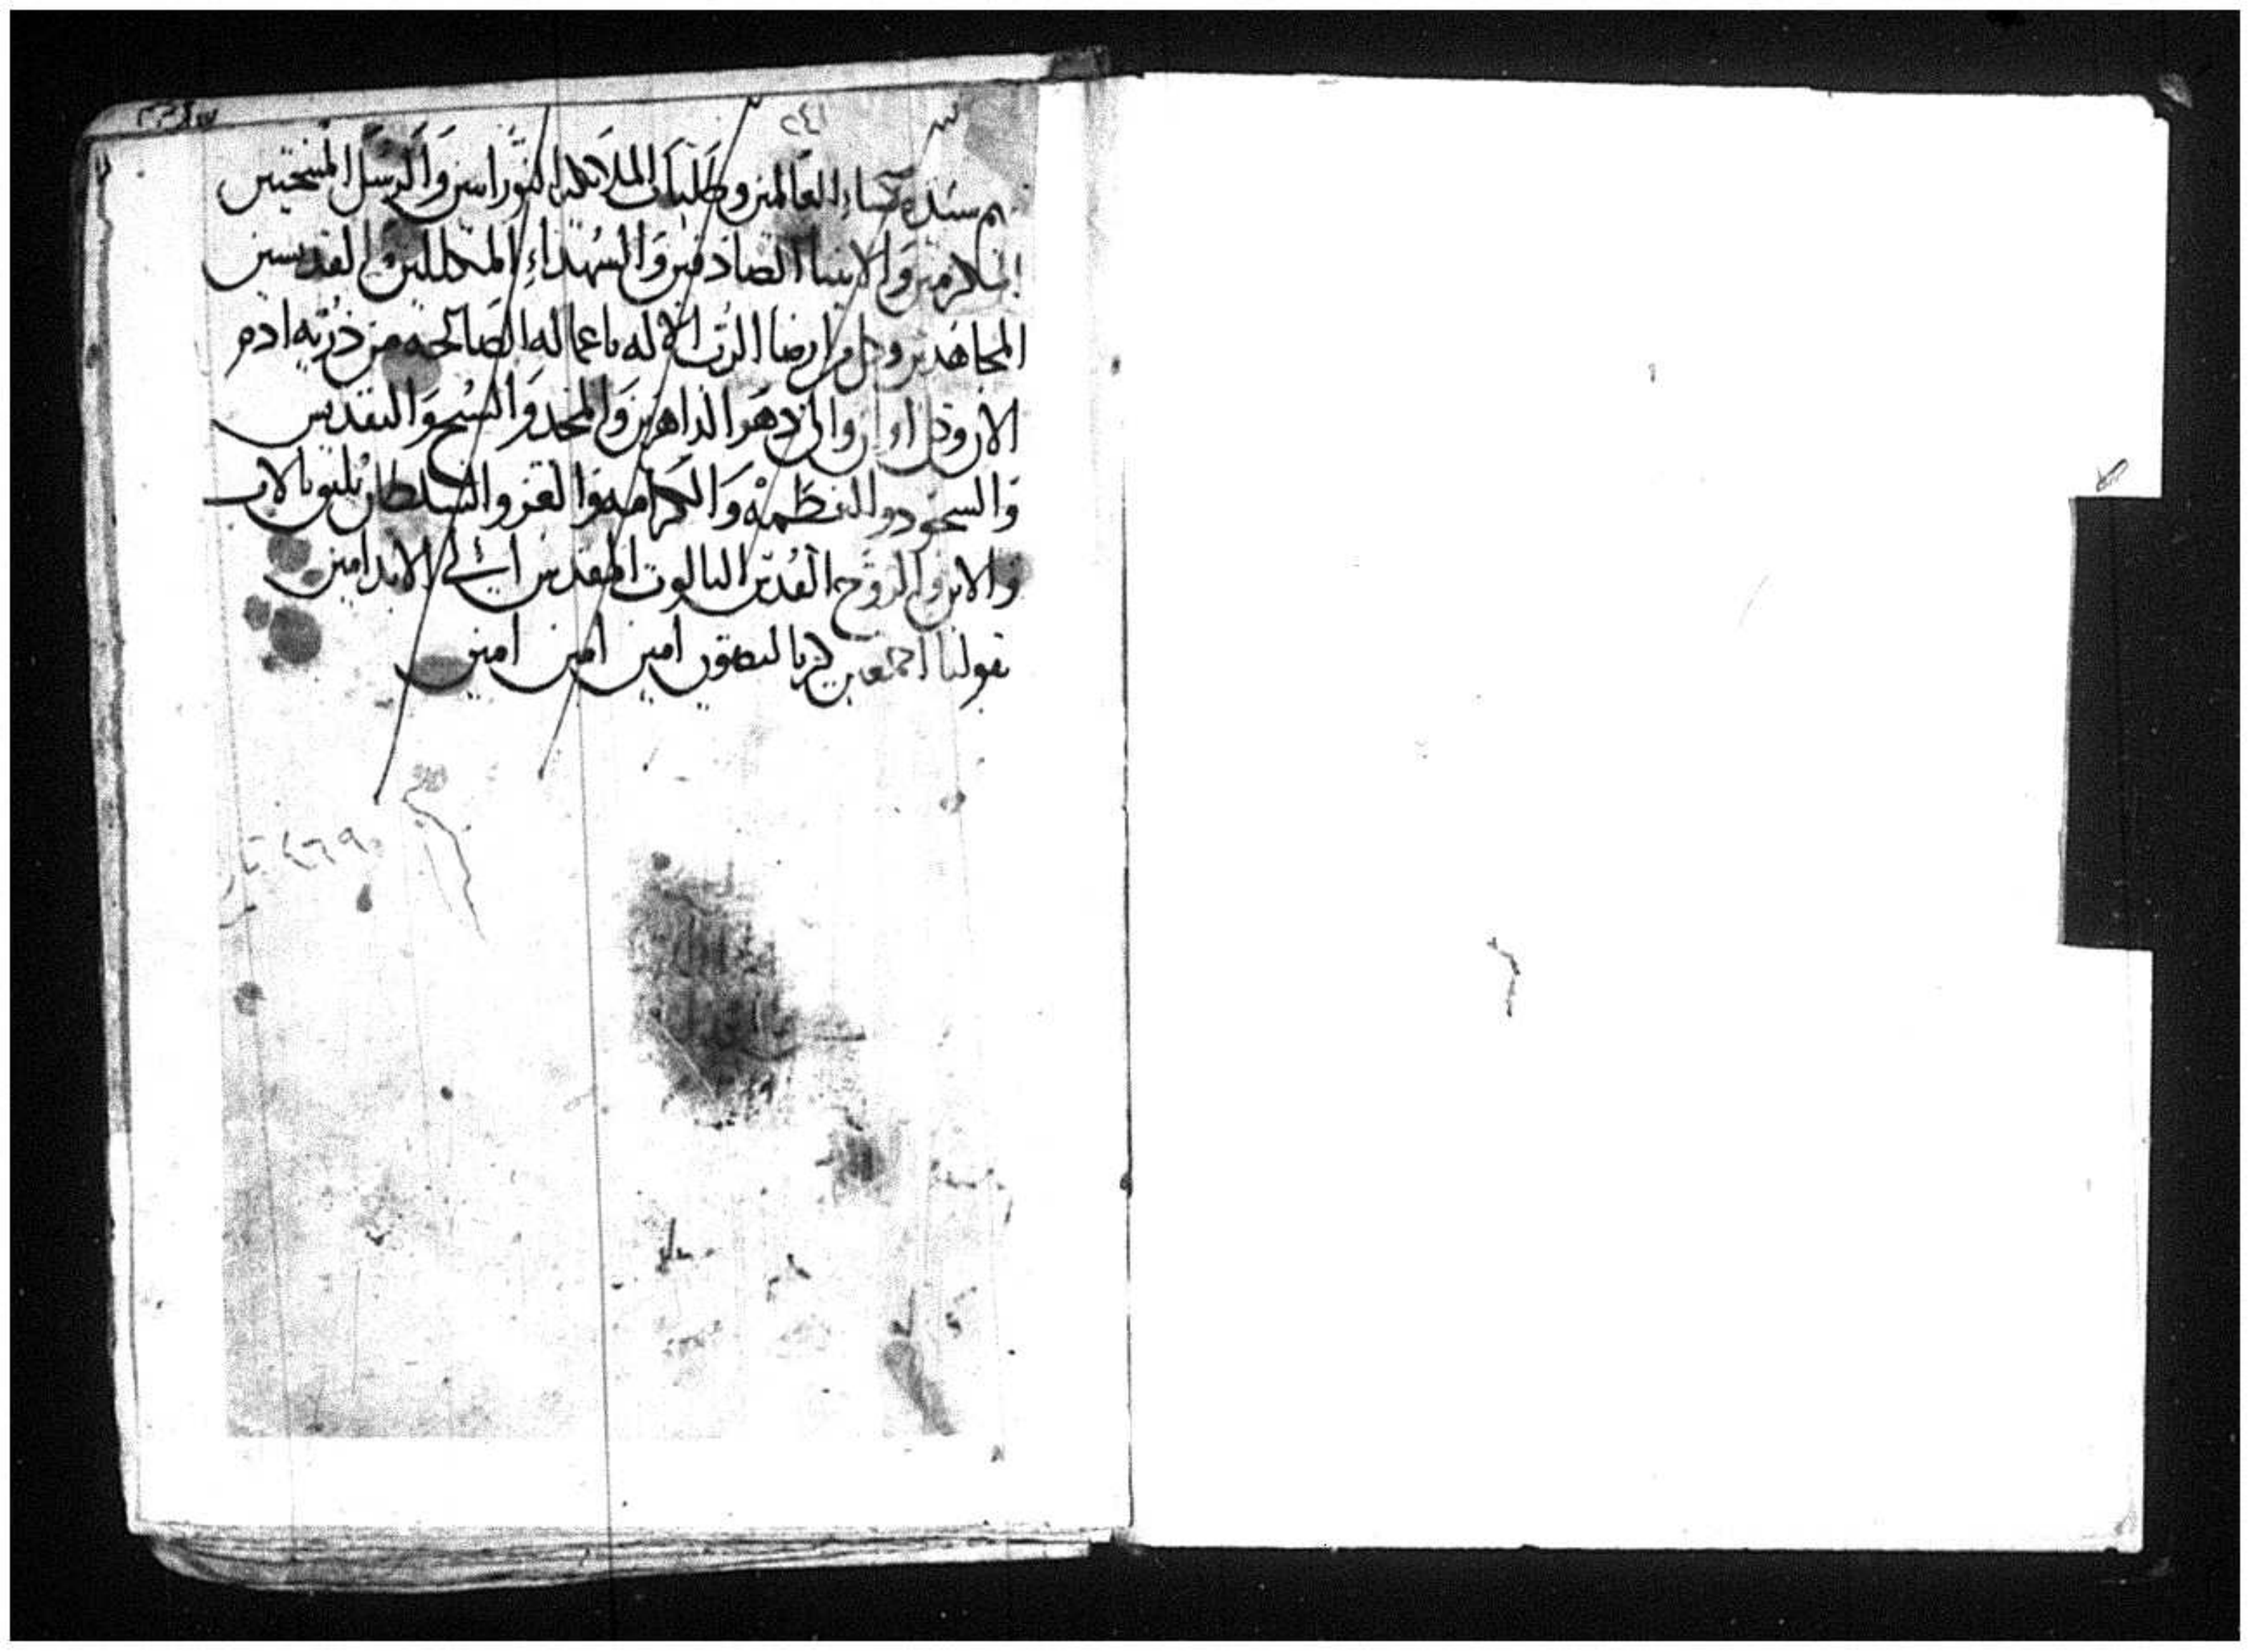 ٢٤١
سيدة نساء العالمين وطلبات الملائكة النورانين وَالرسَل المنتخبين
المكرمين وَالانبيا الصَادقين وَالشهَداءِ المكللين وَالقديسين
المجاهَدين وكل من ارضا الرَب الاله باعماله الصَالحه من ذريه ادم
الان وكل اوان والى دهَر الداهرين وَالمجَد وَالتسُبيح وَالتقديس
وَالسجود والعَظمَه وَالكرَامه وَالعَز والسُلطان يليق بالاب
وَالابن وَالرَوح القُدس الثالوث المقدس الي الابد امين
نقولنا اجمَعين كريا ليصَون امين امين امين